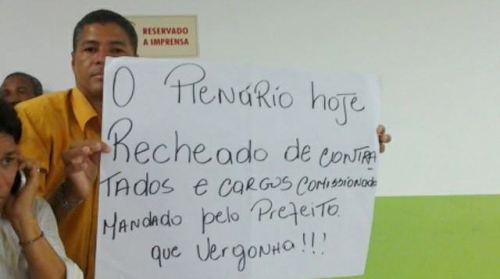 RESERVADO
A IMPRENSA
O PLENÁRIO hoje
Recheado de CONTRA
TADOS e CARGOS COMISSIONADO
MANDADO pelo Prefeito.
que Vergonha!!!